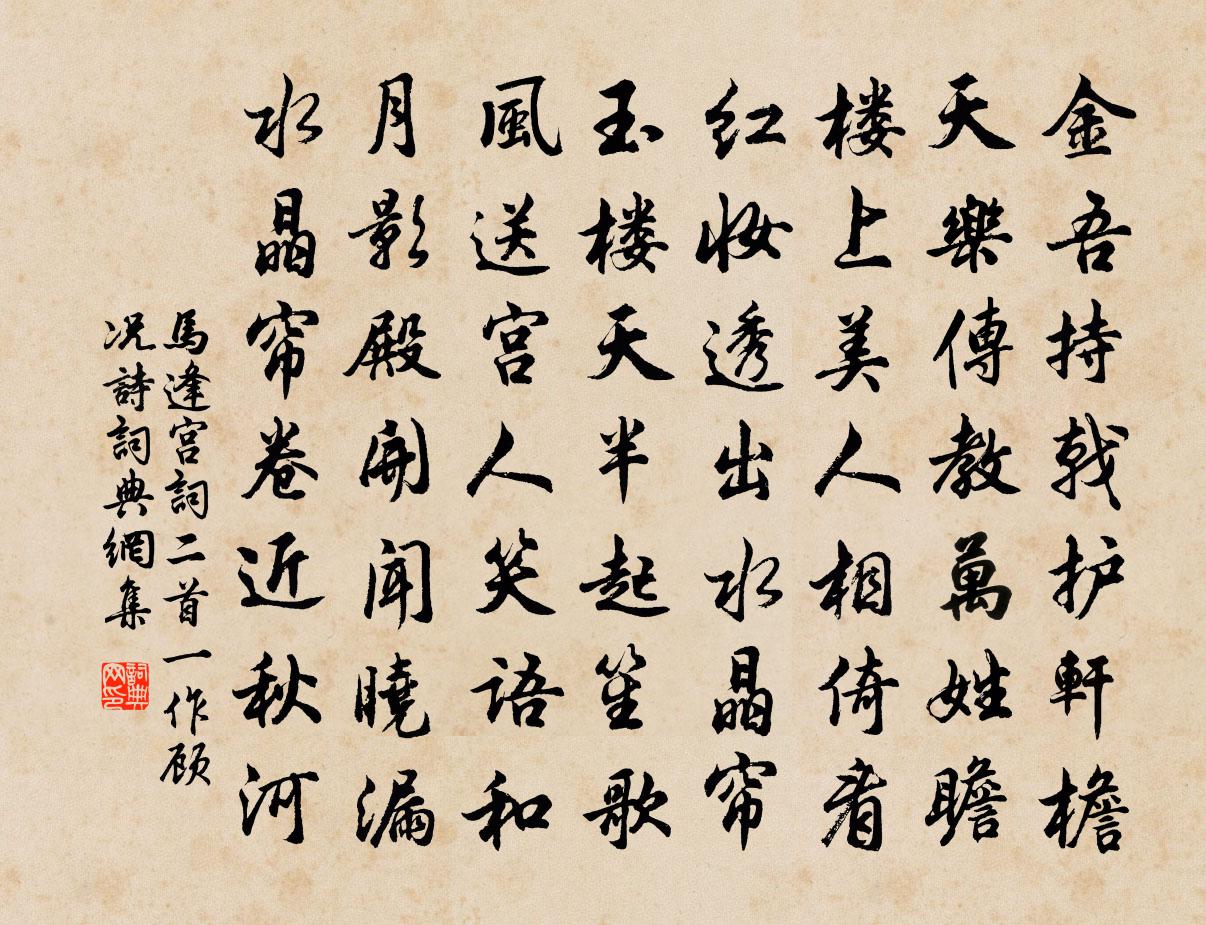 金吾持戟护軒檐
天樂傳教萬姓瞻
楼上美人相倚看
红妆透出水晶帘
玉楼天半起笙歌
風送宫人笑语和
月影殿開闻曉漏
水晶帘卷近秋河
馬逢宫詞二首一作顾
况詩詞典網集
詞典
网印